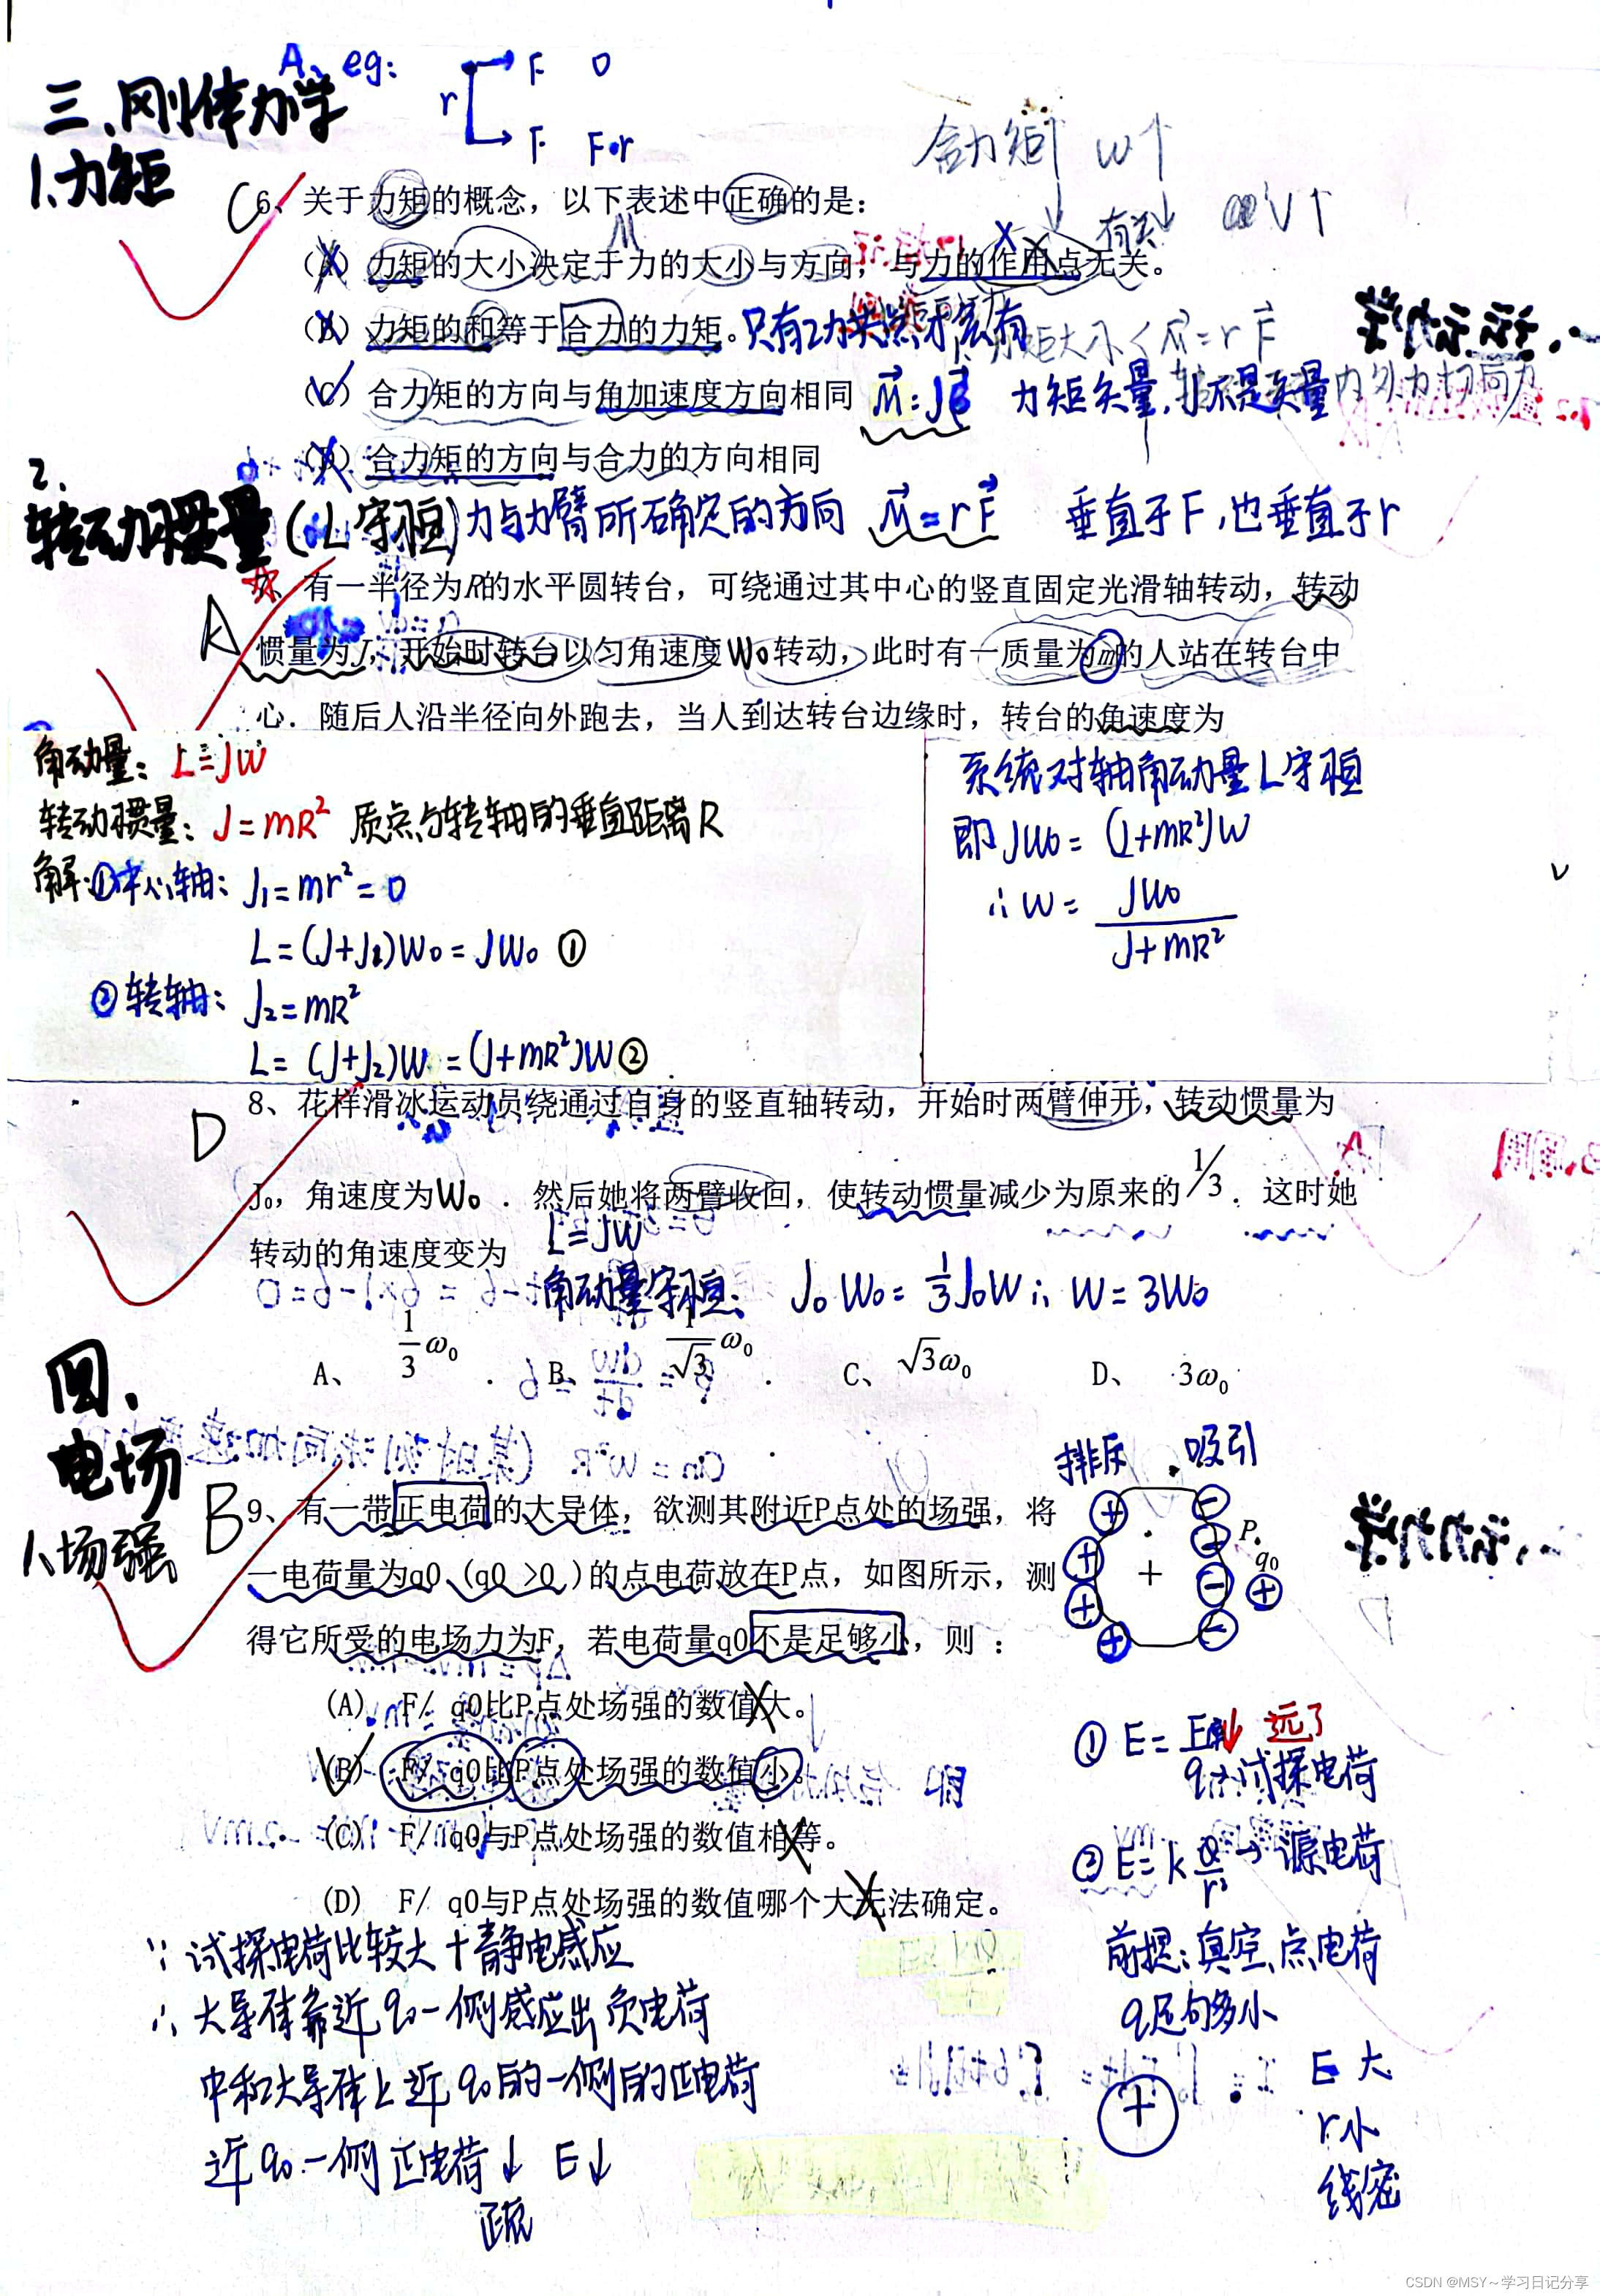 三、刚体力学
A、eg:
r F 0
F F·r
1.力矩
合力矩↑ W↑
C 6、关于力矩的概念，以下表述中正确的是：
M
有关 V↑
(A) 力矩的大小决定于力的大小与方向，与力的作用点无关。
(B) 力矩的和等于合力的力矩。只有
(C) 合力矩的方向与角加速度方向相同 M=Jβ 力矩矢量，J不是矢量
(D) 合力矩的方向与合力的方向相同
2.
转动惯量(L守恒) 力与力臂所确定的方向 M=rF 垂直于F，也垂直于r
A 7、有一半径为R的水平圆转台，可绕通过其中心的竖直固定光滑轴转动，转动
惯量为J，开始时转台以匀角速度W₀转动，此时有一质量为m的人站在转台中
心．随后人沿半径向外跑去，当人到达转台边缘时，转台的角速度为
角动量：L=JW
转动惯量：J=mR² 质点与转轴的垂直距离R
解：①中心轴：J₁=mr²=0
L=(J+J₁)W₀=JW₀ ①
②转轴：J₂=mR²
L=(J+J₂)W=(J+mR²)W ②
系统对轴角动量L守恒
即JW₀=(J+mR²)W
∴W=JW₀/(J+mR²)
D 8、花样滑冰运动员绕通过自身的竖直轴转动，开始时两臂伸开，转动惯量为
J₀，角速度为W₀．然后她将两臂收回，使转动惯量减少为原来的1/3．这时她
转动的角速度变为
L=JW
角动量守恒： J₀W₀=1/3J₀W ∴W=3W₀
A、 1/3 ω₀ ． B、 1/√3 ω₀ ． C、 √3ω₀ D、 3ω₀
四、
电场
1、场强
排斥 吸引
B 9、有一带正电荷的大导体，欲测其附近P点处的场强，将
一电荷量为q0 (q0 >0 )的点电荷放在P点，如图所示，测
得它所受的电场力为F，若电荷量q0不是足够小，则 ：
+ P q₀
(A) F/ q0比P点处场强的数值大。
(B) F/ q0比P点处场强的数值小。
(C) F/ q0与P点处场强的数值相等。
(D) F/ q0与P点处场强的数值哪个大无法确定。
① E= F↓ 远了
q→试探电荷
② E=k Q/r² →源电荷
前提：真空、点电荷
q足够小
∵试探电荷比较大＋静电感应
∴大导体靠近q₀一侧感应出负电荷
中和大导体上近q₀的一侧的正电荷
近q₀一侧正电荷↓ E↓
疏
+
E 大
r小
线密
CSDN @MSY～学习日记分享